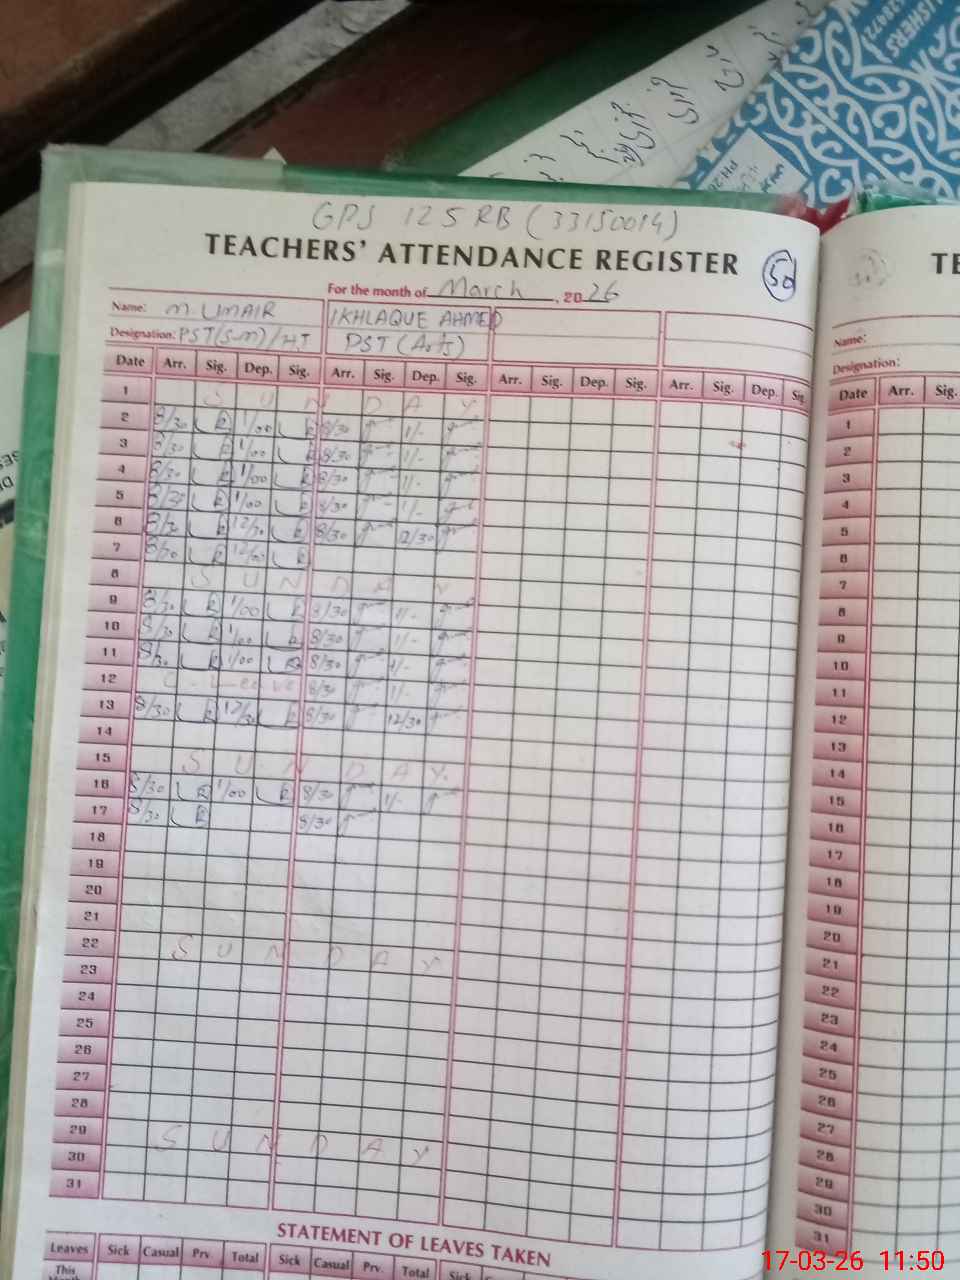 GPS 125 RB (33150014)
TEACHERS' ATTENDANCE REGISTER
50
For the month of March, 2026
Name: M. UMAIR IKHLAQUE AHMED
Designation: PST(S.M)/H.T PST (Arts)
Date Arr. Sig. Dep. Sig. Arr. Sig. Dep. Sig. Arr. Sig. Dep. Sig. Arr. Sig. Dep. Sig.
1 S U N D A Y
2 8/30 1/00 8/30 1/-
3 8/30 1/00 8/30 1/-
4 8/30 1/00 8/30 1/-
5 8/30 1/00 8/30 1/-
6 8/30 12/30 8/30 12/30
7 8/30
8 S U N D A Y
9 8/30 1/00 8/30 1/-
10 8/30 1/00 8/30 1/-
11 8/30 1/00 8/30 1/-
12 C. Leave 8/30 1/-
13 8/30 12/30 8/30 12/30
14
15 S U N D A Y
16 8/30 1/00 8/30 1/-
17 8/30 8/30
18
19
20
21
22 S U N D A Y
23
24
25
26
27
28
29 S U N D A Y
30
31
STATEMENT OF LEAVES TAKEN
Leaves Sick Casual Prv. Total Sick Casual Prv. Total Sick
This
TE
Name:
Designation:
Date Arr. Sig.
1
2
3
4
5
6
7
8
9
10
11
12
13
14
15
16
17
18
19
20
21
22
23
24
25
26
27
28
29
30
31
17-03-26 11:50